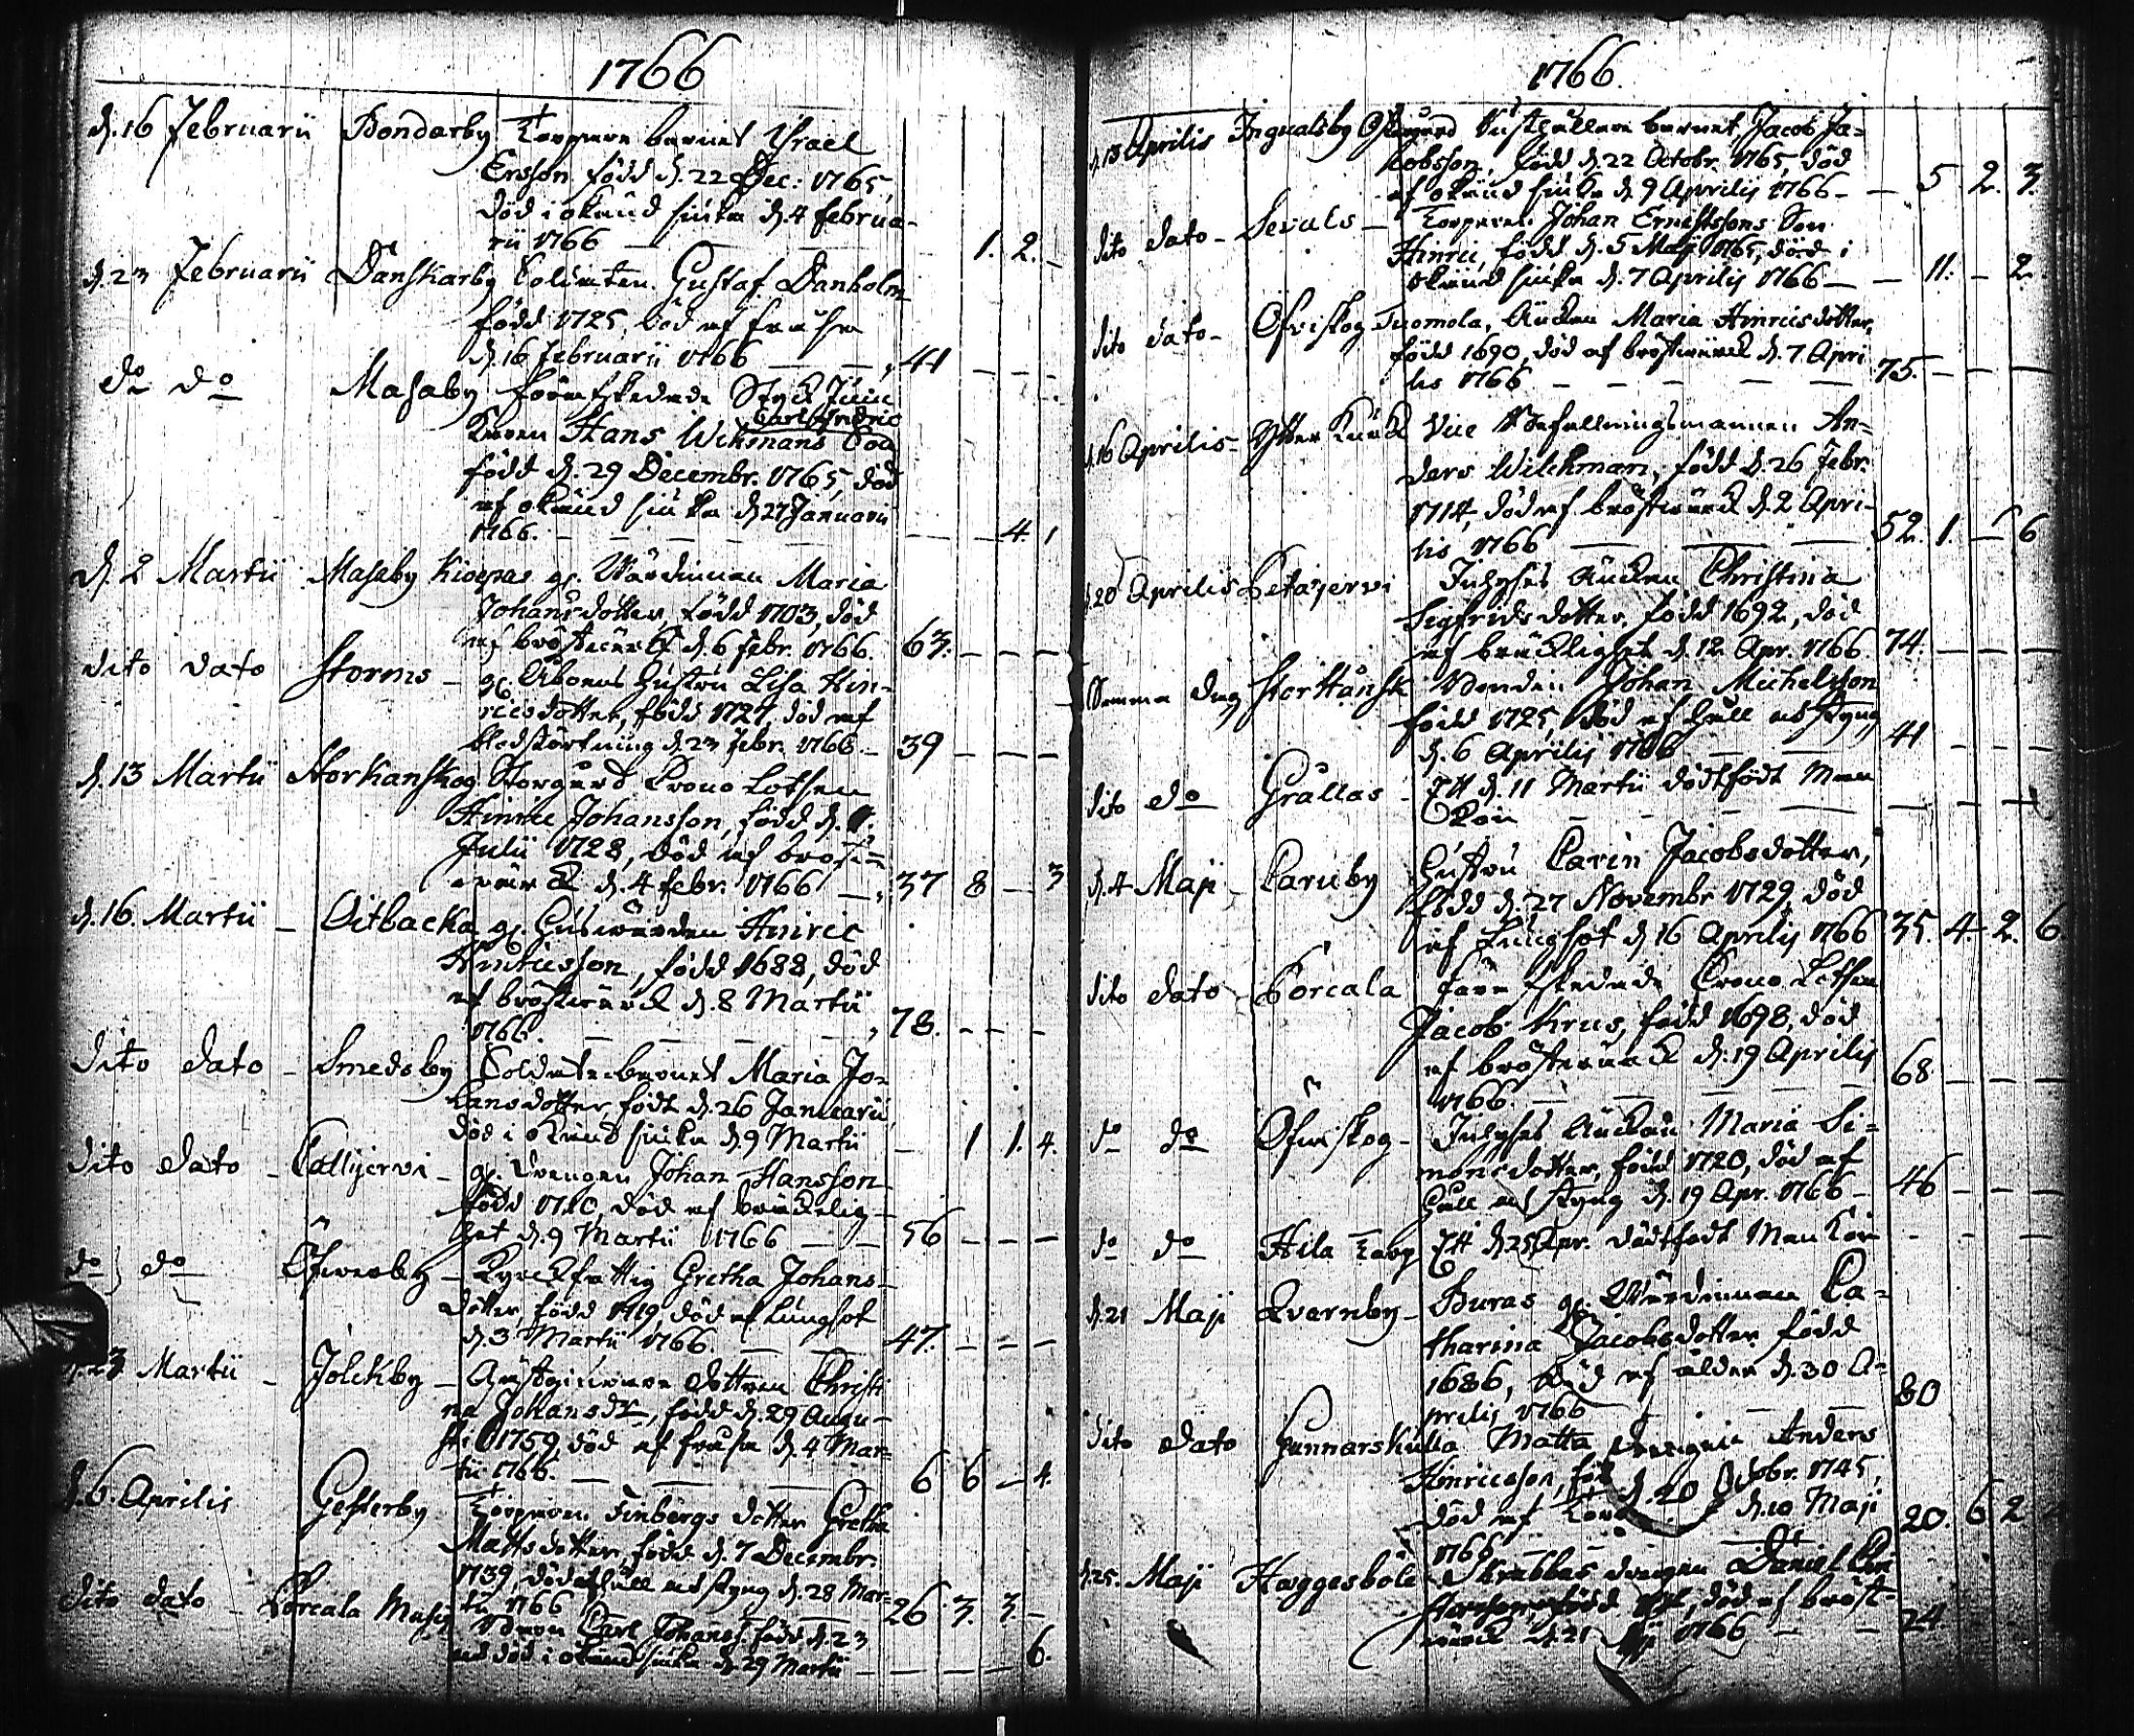 1766
d. 16 Februarii Bondarby Torpare barnet Israel
Ersson född d. 22 Dec: 1765,
död i okänd siuka d. 4 februa-
rii 1766 — 1. 2. -
d. 23 Februarii Danskarby Soldaten Gustaf Danholm
född 1725, död af frusn
d. 16 Februarii 1766 — 41 - - -
do do Masaby förafskedade Styck Jun
Karen Hans Wikmans Son
Carl Fredric
född d. 29 Decembr. 1765, död
af okänd siuka d. 27 Januarii
1766. — 4. 1
d. 2 Martii Masaby Kiöpas gl. Wärdinnan Maria
Johansdotter, född 1703, död
af bröstwärck d. 6 febr. 1766. 63. - - -
dito dato Storms - gl. Åboens Hustru Lisa Hin-
ricsdotter, född 1727, död af
blodstörtning d. 23 Febr. 1766 - 39 - - -
d. 13 Martii Storkanskog Storgård Crono Lotsen
Hinric Johansson, född d.
Julii 1728, död af bröst-
wärck d. 4 febr. 1766 - 37 8 - 3
d. 16. Martii - Oitbacka gl. Huswärden Hinric
Hinricsson, född 1688, död
af bröstwärck d. 8 Martii
1766. — 78. - - -
dito dato - Smedsby Soldate barnet Maria Jo-
hansdotter, födt d. 26 Januarii
död i okänd siuka d. 9 Martii - 1 1. 4.
dito dato - Callijervi - gl. drengen Johan Hansson
född 1710, död af bräcklig-
het d. 9 Martii 1766 — 56 - - -
do do Öfwerby - Kyrckfattig Gretha Johans-
dotter, född 1719, död af Lungsot
d. 3 Martii 1766. — 47. - - -
d. 23 Martii - Jolckby - Gästgifware dottren Christi
na Johansdr, född d. 29 Augu-
sti 1759, död af frusn d. 4 Mar-
tii 1766. — 6 6 - 4.
d. 6. Aprilis Gesterby Torparen Finbergs dotter Gretha
Mattsdotter, född d. 7 Decembr.
1739, död af håll ock styng d. 28 Mar-
tii 1766 — 26 3. 3. -
dito dato - Porcala Carl Johans född d. 23
död i okänd siuka d. 29 Martii - - - - 6.
1766.
d. 13 Aprilis Ingvalsby barnet Jacob Ja-
cobsson, född d. 22 Octobr. 1765, död
af okänd siuka d. 9 Aprilis 1766 - - 5 2. 3.
dito dato - Sevals - Torparen Johan Ernestssons Son
Hinric, född d. 5 Maji 1765, död i
okänd siuka d. 7 Aprilis 1766 - - 11. - 2
dito dato - Öfviskog Tuomola, Änckan Maria Hinricsdotter,
född 1690, död af bröstwärck d. 7 Apri
lis 1766 — 75. - - -
d. 16 Aprilis - Ytter Kurck Vice Befallningsmannen An-
ders Wilckman, född d. 26 Febr.
1714, död af bröstwärck d. 2 Apri-
lis 1766 — 52. 1. - 6
d. 20 Aprilis Petajervi Inhyses Änckan Christina
Sigfrids dotter, född 1692, död
af bräcklighet d. 12 Apr. 1766. 74. - - -
Samma dag Storkansk Bonden Johan Michelsson
född 1725, död af håll ock styng
d. 6 Aprilis 1766 — 41 - - -
dito do Grällas - Ett d. 11 Martii dödtfödt Man
Kön — - - - -
d. 4 Maji - Caruby Hustru Carin Jacobsdotter,
född d. 27 Novembr 1729, död
af Lungsot d. 16 Aprilis 1766 35. 4. 2. 6.
dito dato - Porcala förafskedade Crono Lotsen
Jacob Krus, född 1698, död
af bröstwärck d. 19 Aprilis
1766. — 68 - - -
do do Öfwiskog - Inhyses Änckan Maria Si-
monsdotter, född 1720, död af
håll ock styng d. 19 Apr. 1766 - 46 - - -
do do Hila Torp Ett d. 25 Apr. dödtfödt Man Kön - - - -
d. 21 Maji Qvarnby - Buras gl. Wärdinnan Ca-
tharina Jacobsdotter född
1686, död af ålder d. 30 A-
prilis 1766 — 80
dito dato Gunnarskulla Matta drengen Anders
Hinricsson, född d. 20 Octobr. 1745,
död af d. 10 Maji
1766 — 20. 6 2
d. 25. Maji Haggesböle - Skrabbas drengen Daniel
född död af bröst-
wärck d. 21 Maji 1766 — 24.